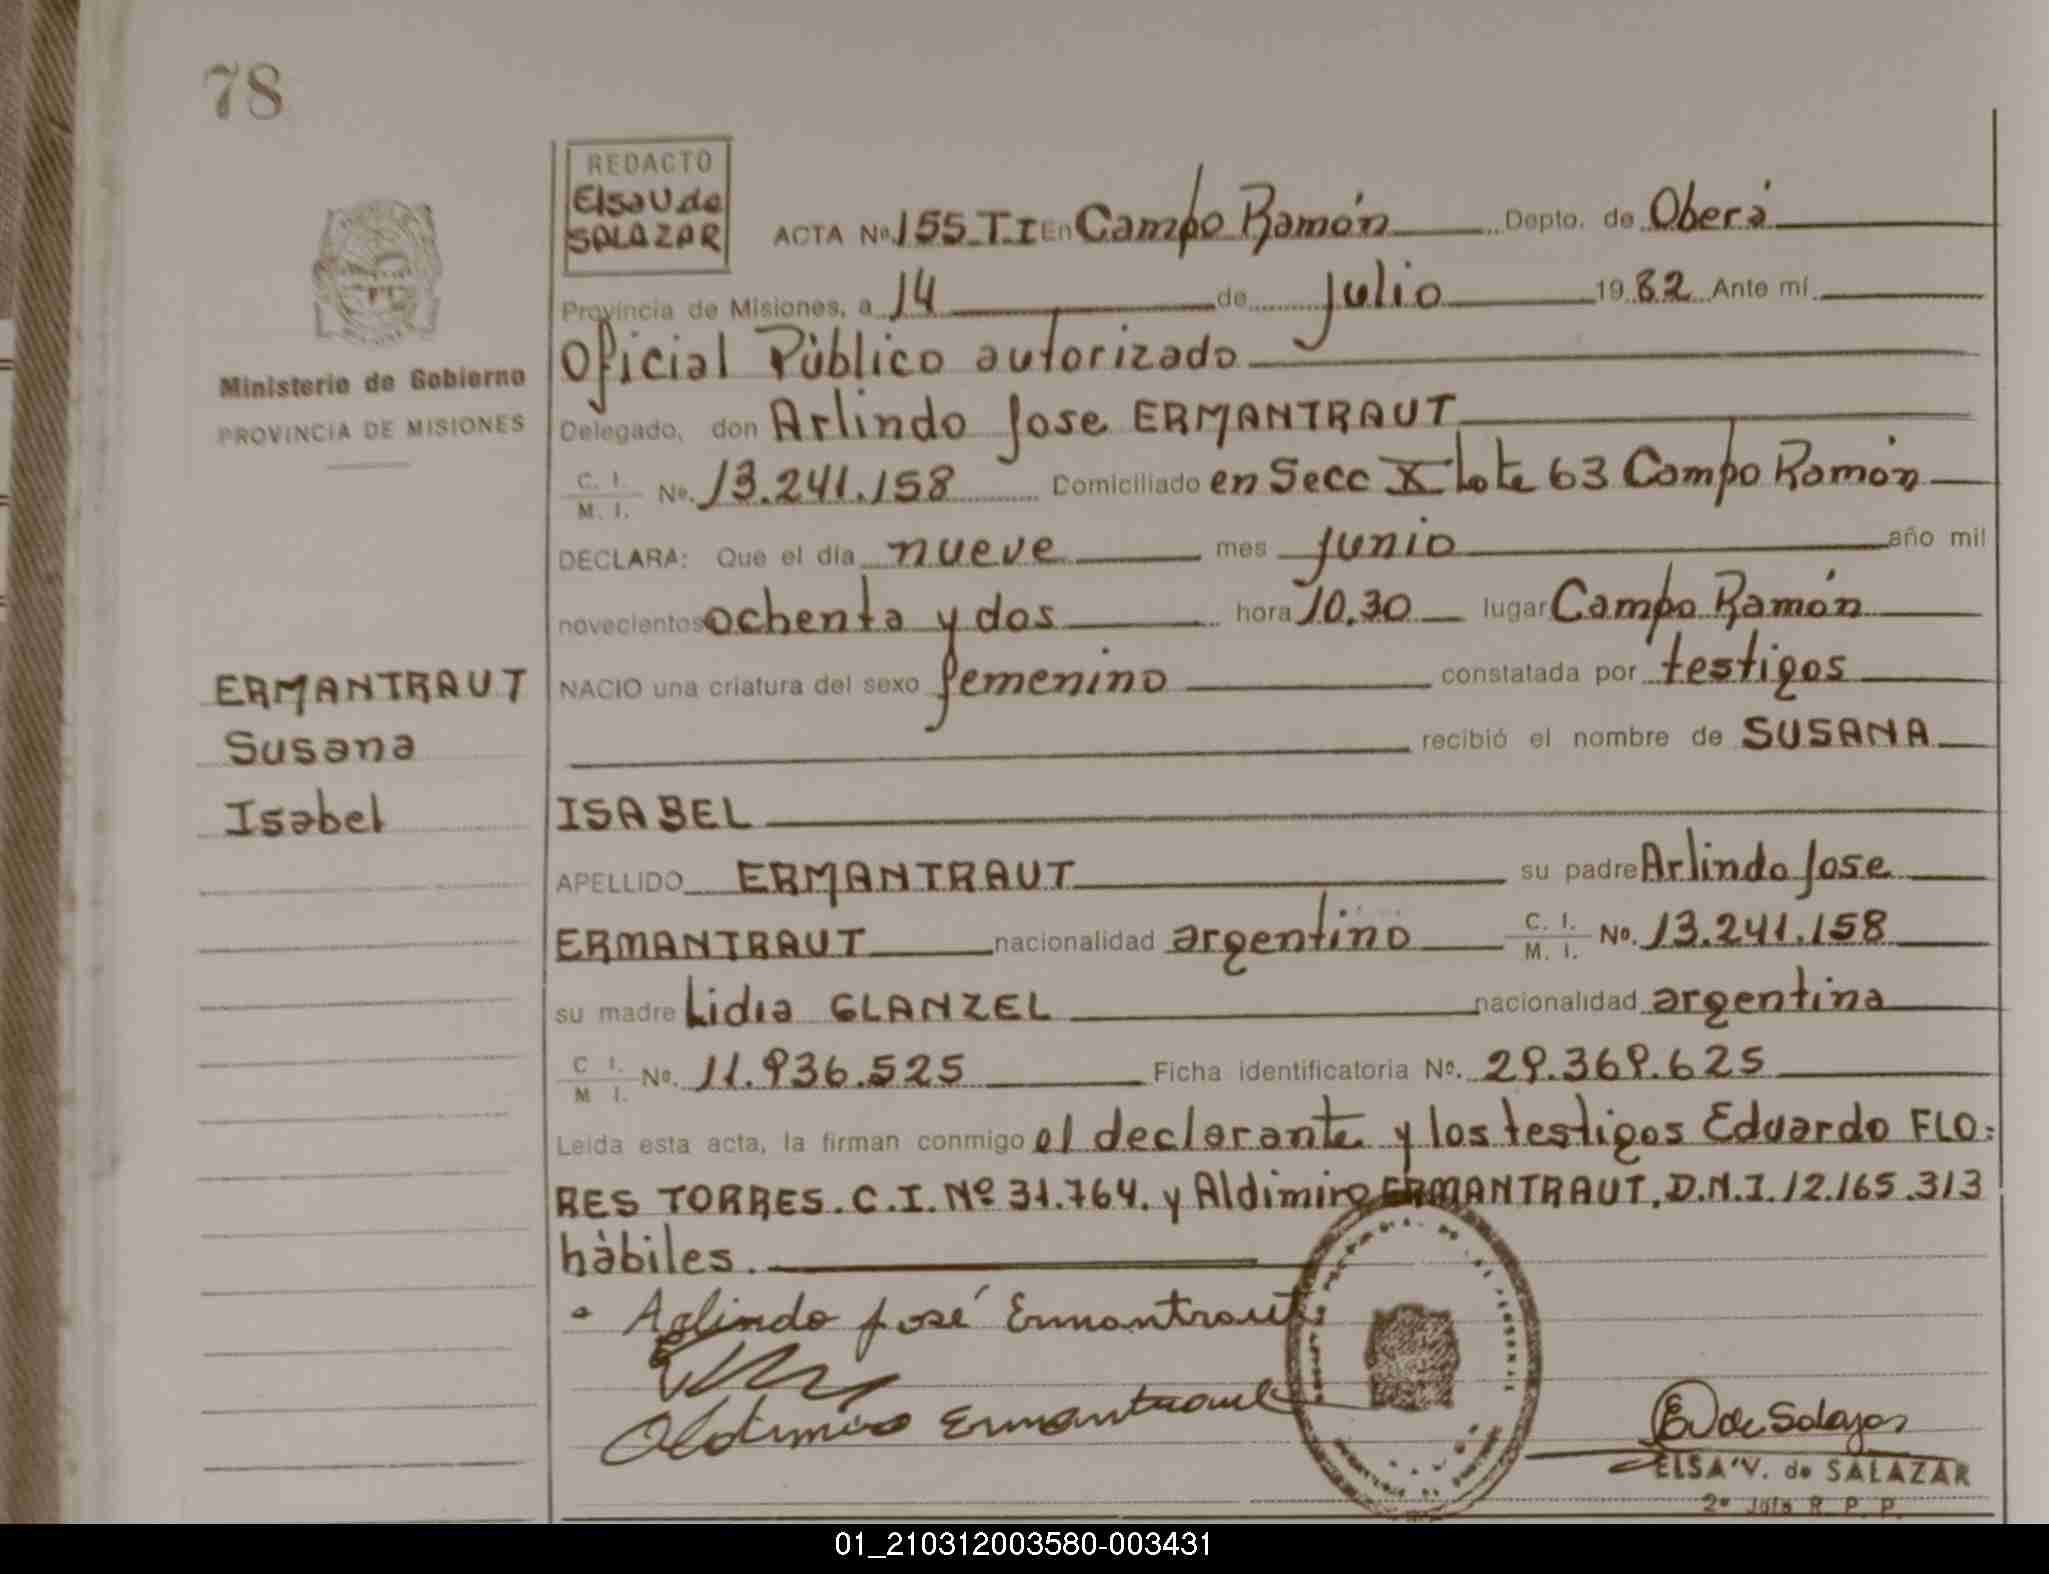 78
REDACTO
Elsa V de
SALAZAR
ACTA Nº 155 T.I En Campo Ramón Depto. de Oberá
Provincia de Misiones, a 14 de Julio 1982 Ante mí
Oficial Público autorizado
Ministerio de Gobierno
PROVINCIA DE MISIONES
Delegado, don Arlindo Jose ERMANTRAUT
C. I.
M. I. Nº. 13.241.158 Domiciliado en Secc X Lote 63 Campo Ramón
DECLARA: Que el día nueve mes junio año mil
novecientos ochenta y dos hora 10.30 lugar Campo Ramón
ERMANTRAUT
Susana
Isabel
NACIO una criatura del sexo femenino constatada por testigos
recibió el nombre de SUSANA
ISABEL
APELLIDO ERMANTRAUT su padre Arlindo Jose
ERMANTRAUT nacionalidad argentino C. I.
M. I. Nº. 13.241.158
su madre Lidia GLANZEL nacionalidad argentina
C. I.
M. I. Nº. 11.936.525 Ficha identificatoria Nº. 29.369.625
Leída esta acta, la firman conmigo el declarante y los testigos Eduardo FLO=
RES TORRES. C.I. Nº 31.764. y Aldimiro ERMANTRAUT. D.N.I. 12.165.313
hàbiles.
Arlindo José Ermantraut
Aldimiro Ermantraut
EV de Salazar
ELSA V. de SALAZAR
2º Jefa R. P. P.
01_210312003580-003431